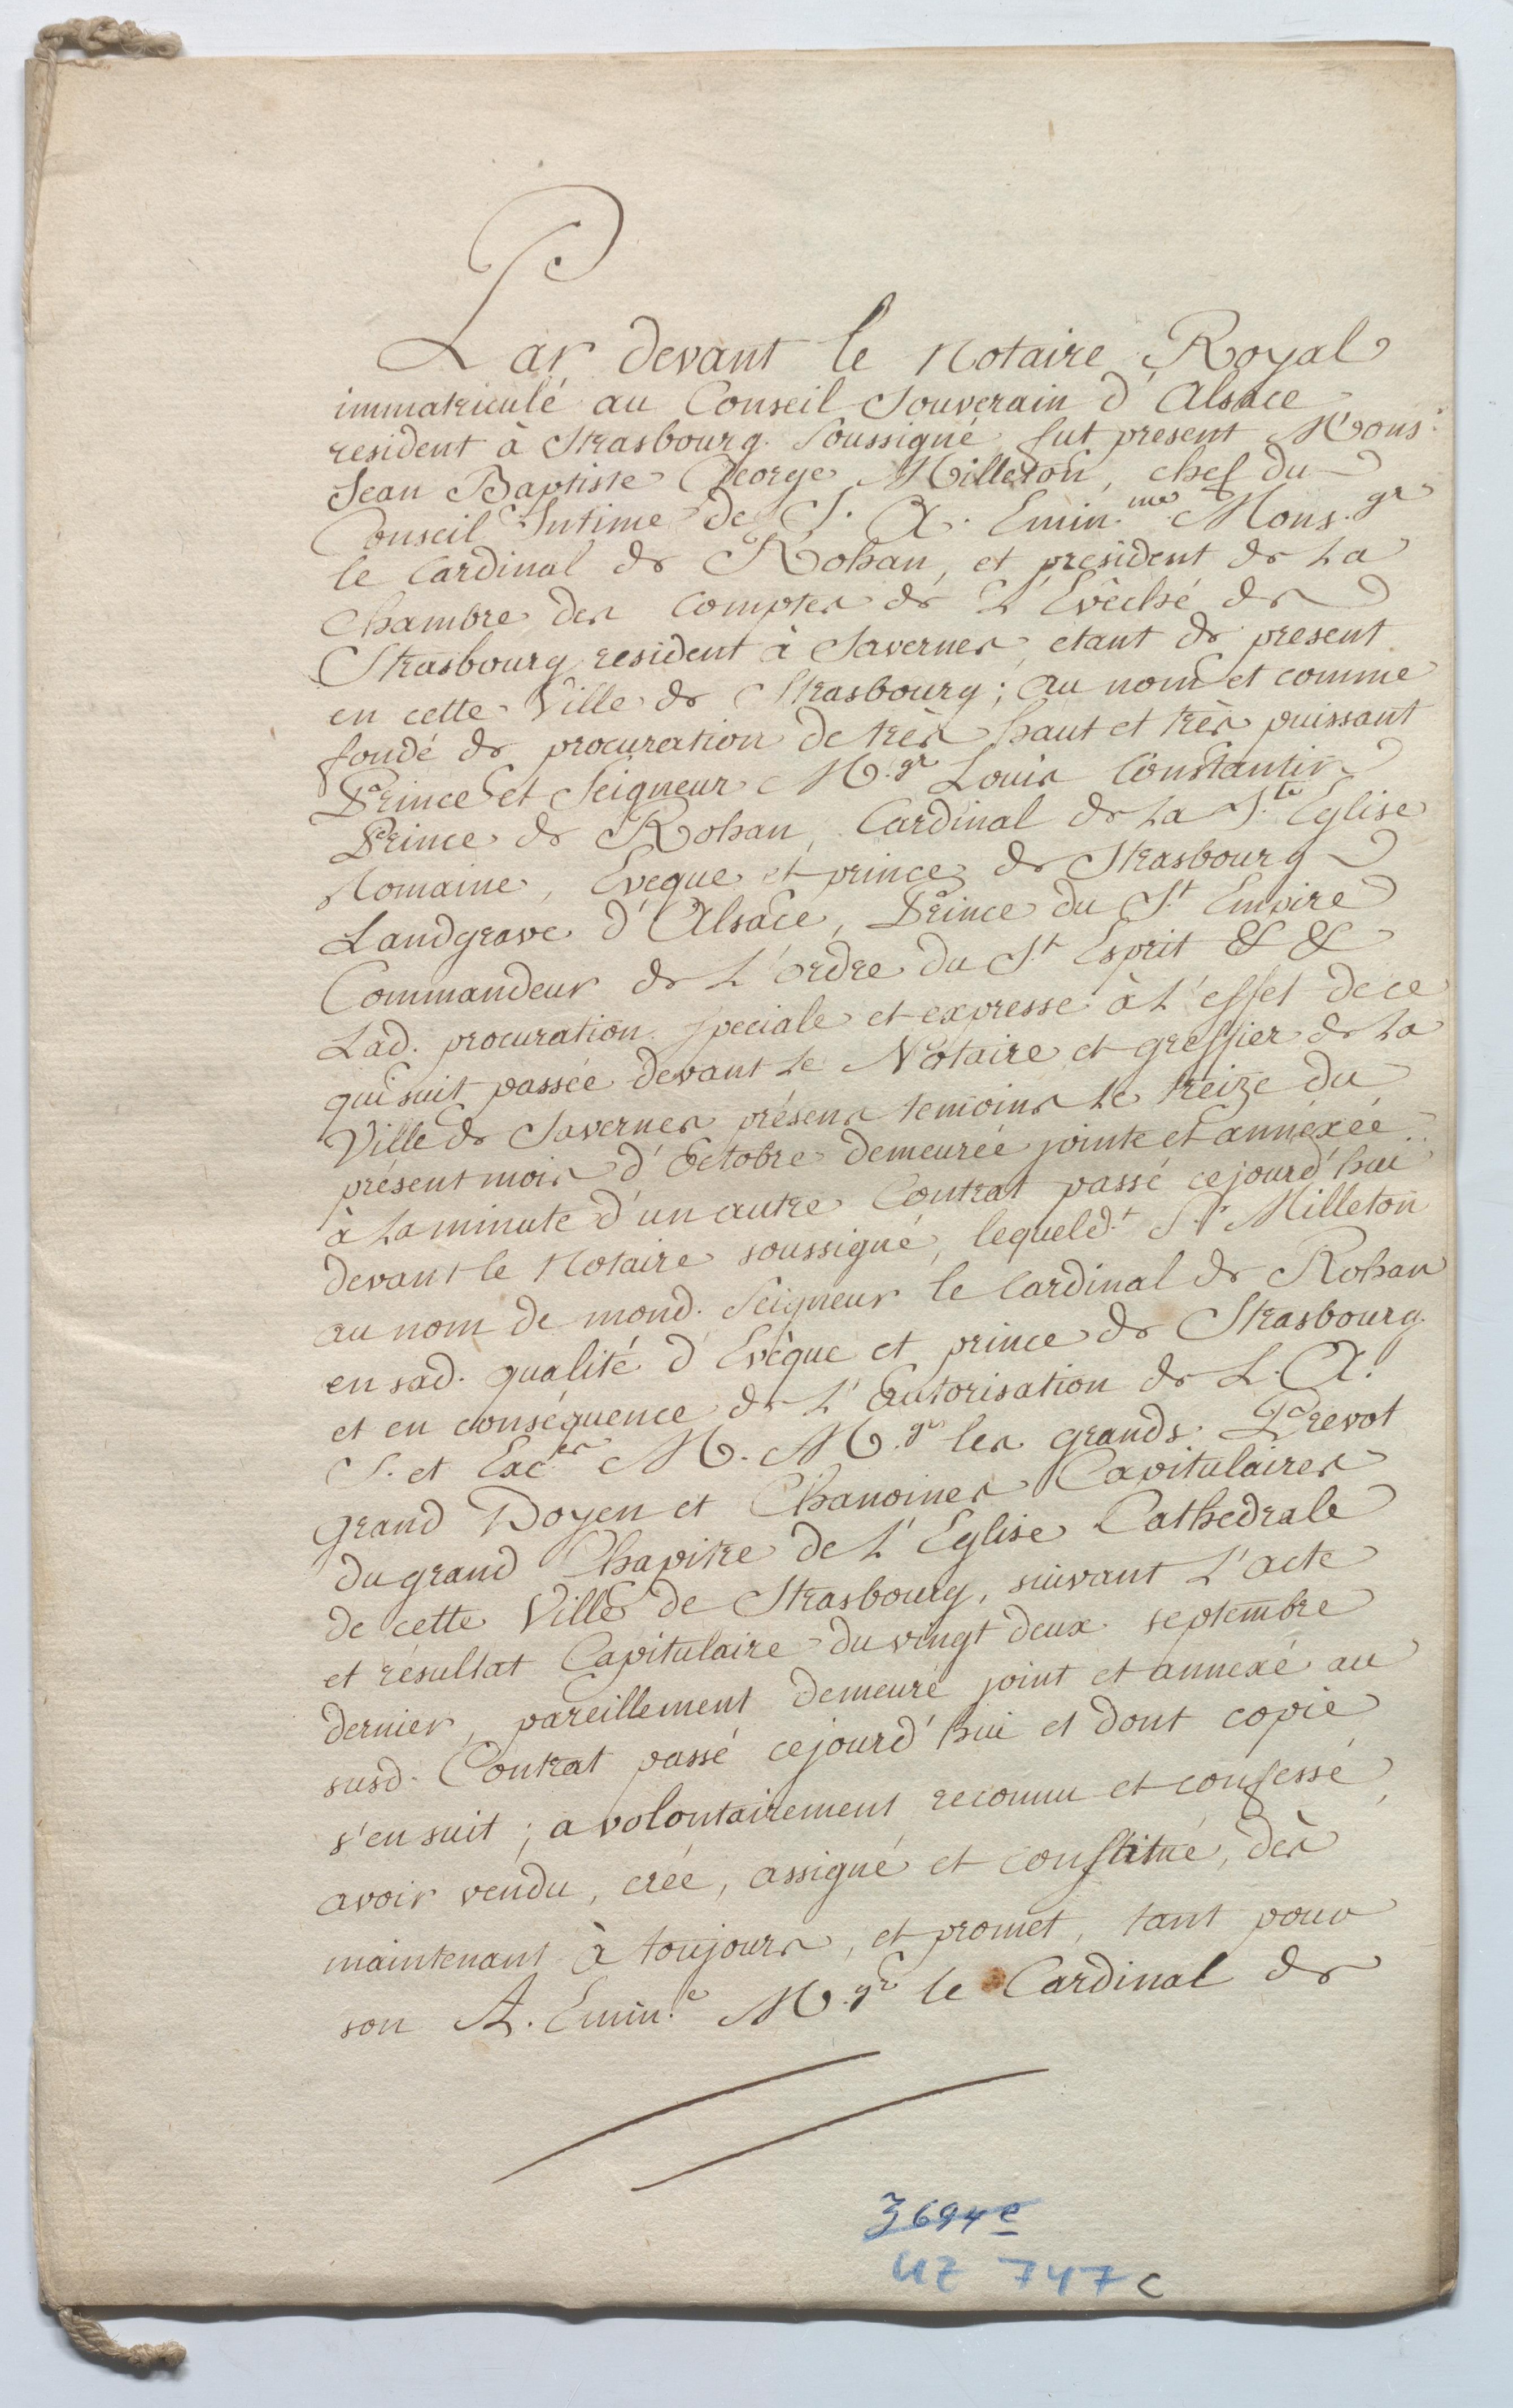 Par devant le Notaire Royal
immatriculé au Conseil Souverain d'Alsace
resident à Strasbourg. Soussigné, fut present Mons.
Jean Baptiste George Milleton, chef du
Conseil Intime de S. A. Emin.me Mons.gr
le Cardinal de Rohan, et president de La
Chambre des Comptes de L'Evêché de
Strasbourg resident à Savernes, etant de present
en cette Ville de Strasbourg; au nom et comme
fondé de procuration de très haut et très puissant
Prince et Seigneur M.gr Louis Constantin
Prince de Rohan, Cardinal de La S.te Eglise
Romaine, Eveque et prince de Strasbourg
Landgrave d'Alsace, Prince du S.t Empire
Commandeur de L'ordre du S.t Esprit & &
Lad. procuration speciale et expresse à L'effet de ce
qui suit passée devant Le Notaire et greffier de La
Ville de Savernes présens temoins Le treize du
présent mois d'Octobre demeurée jointe et annéxée
à La minute d'un autre Contrat passé cejourd'hui
devant le Notaire soussigné, lequeld.t S.r Milleton
au nom de mond. Seigneur le Cardinal de Rohan
en sad. qualité d'Evêque et prince de Strasbourg
et en conséquence de L'Autorisation de L. A.
S. et Exc.es M. M.grs les grands Prevot
grand Doyen et Chanoines Capitulaires
du grand Chapitre de L'Eglise Cathedrale
de cette Ville de Strasbourg, suivant L'acte
et résultat Capitulaire du vingt deux septembre
dernier, pareillement demeuré joint et annexé au
susd. Contrat passé cejourd'hui et dont copie
s'en suit; a volontairement reconnu et confessé,
avoir vendu, créé, assigné et constitué, dès
maintenant à toujours, et promet, tant pour
son A. Emin.e M.gr le Cardinal de
3694 e
UZ 747 c